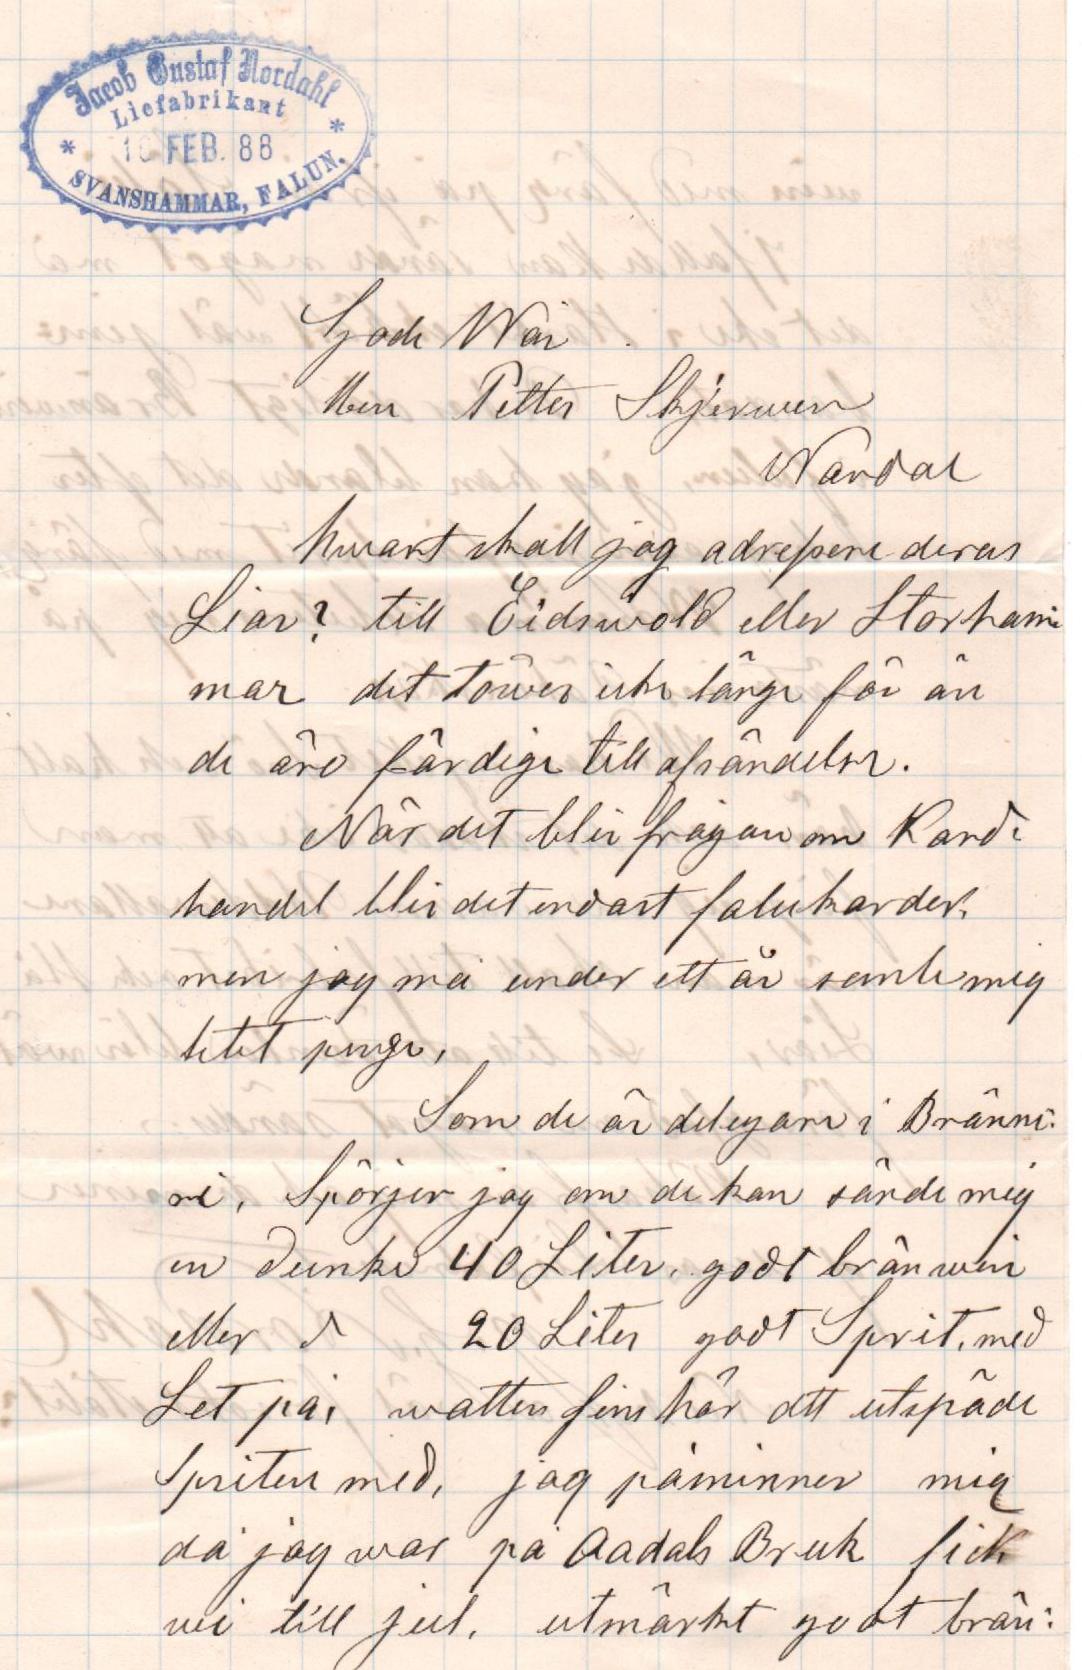 Jacob Gustaf Nordahl
Liefabrikant
* FEB. 88 *
SVANSHAMMAR, FALUN.
Gode Wän
Herr Petter Skjerwen
Wardal
hwart skall jag adressere deras
Liar? till Eidswold eller Storham:
mar det töwer icke länge för än
de äro färdige till afsändelse.
När det blir frågan om Kard:
handel blir det endast falukarder,
men jag må under ett år samle mig
litet penge,
Som de är delegare i Bränne:
ri, Spörjer jag om de kan sände mig
en dunke 40 Liter, godt bränwin
eller d 20 Liter godt Sprit, med
Let på, watten fins här att utspäde
Spriten med, jag påminner mig
då jag war på Aadals Bruk fick
wi till jul, utmärkt godt brän: